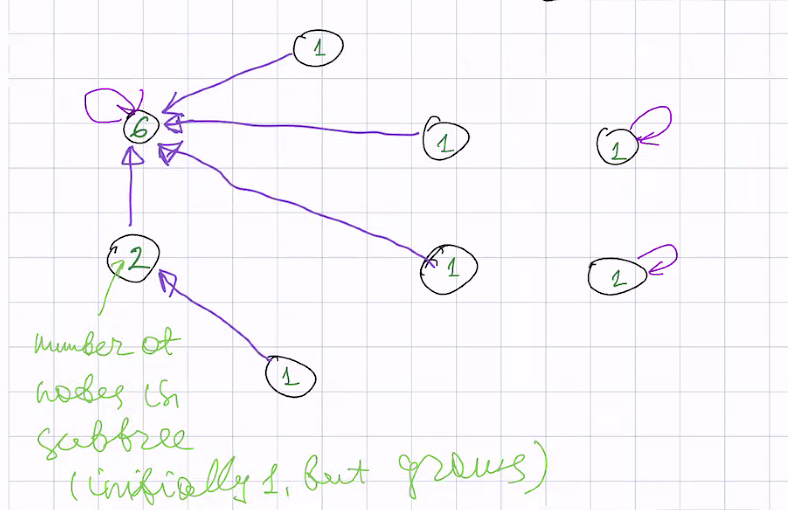 1
6
1
1
2
1
1
1
number of
nodes in
subtree
(initially 1, but grows)